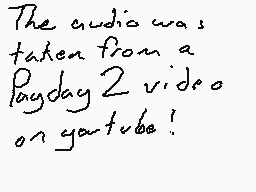 The audio was
taken from a
Payday 2 video
on youtube!